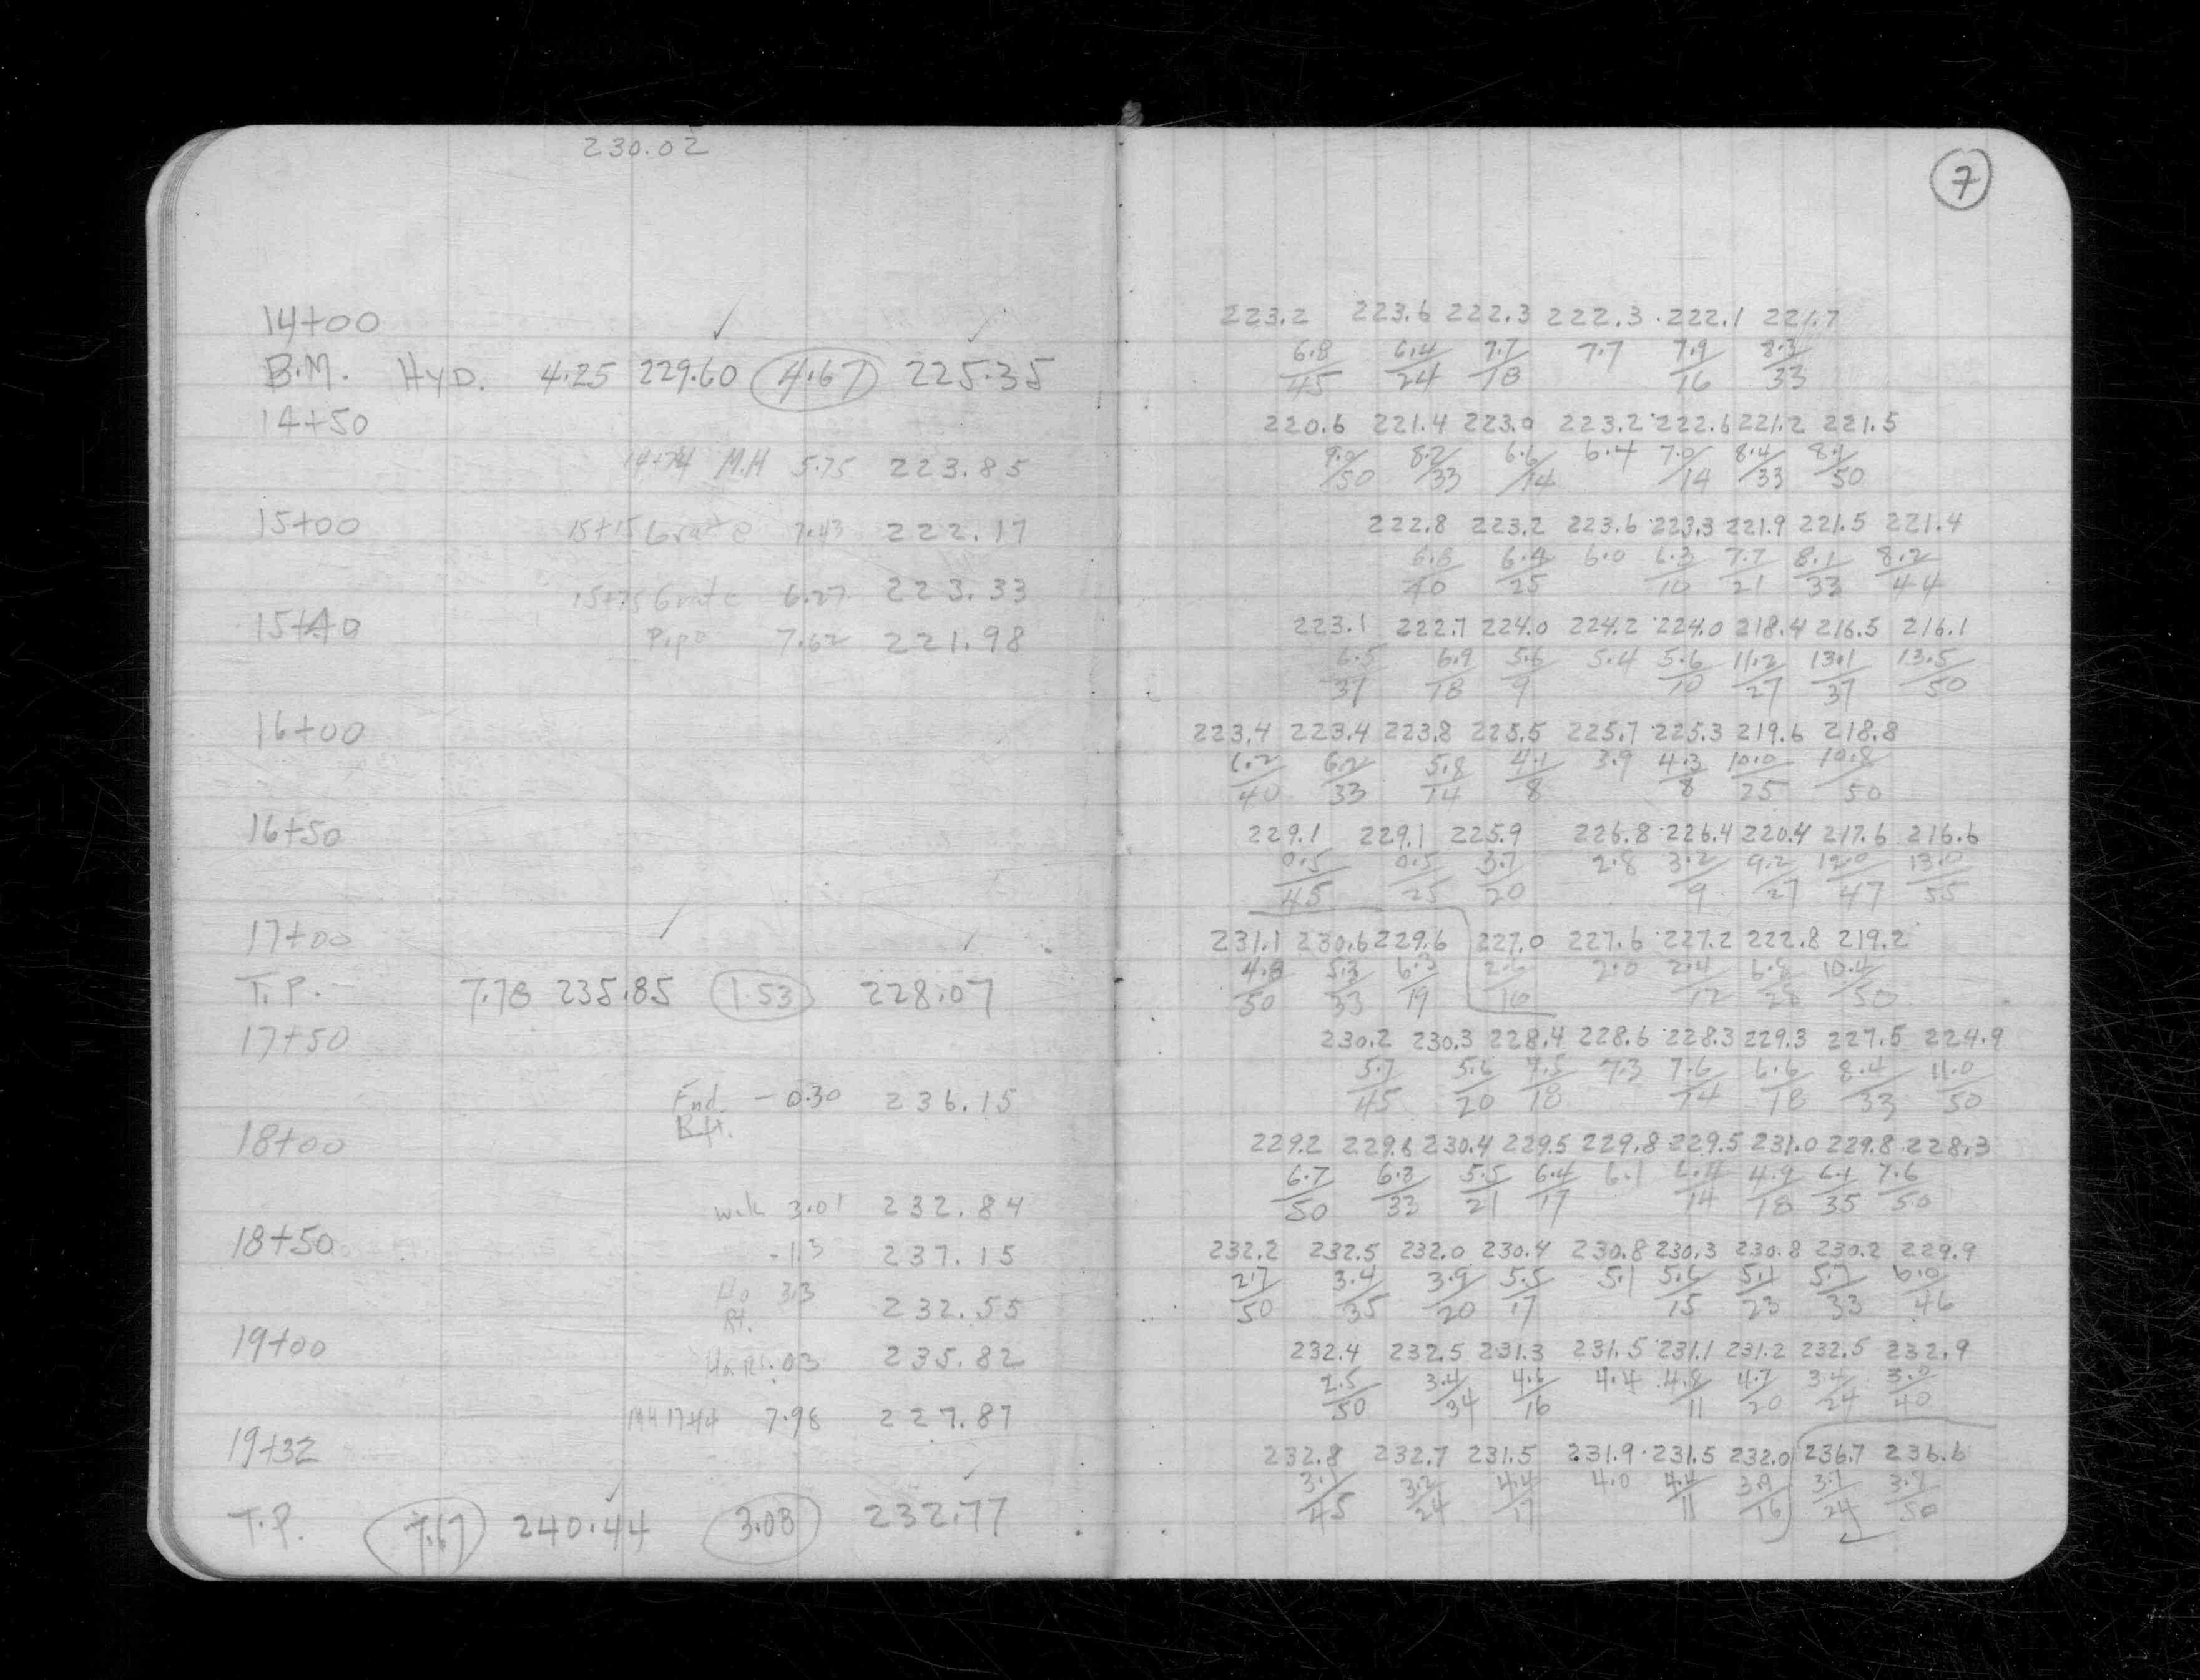 230.02
7
14+00
B.M. HYD. 4.25 229.60 4.67 225.35
14+50
14+74 M.H 5.75 223.85
15+00 15+15 Grate 7.43 222.17
15+75 Grate 6.27 223.33
15+40 Pipe 7.62 221.98
16+00
16+50
17+00
T.P. 7.78 235.85 1.53 228.07
17+50
End -0.30 236.15
18+00
3.01 232.84
18+50 -1.3 237.15
3.3 232.55
Rt.
19+00 .03 235.82
7.98 227.87
19+32
T.P. 7.67 240.44 3.08 232.77
223.2 223.6 222.3 222.3 222.1 221.7
6.8 6.4 7.7 7.7 7.9 8.3
45 24 18 16 33
220.6 221.4 223.0 223.2 222.6 221.2 221.5
9.0 8.2 6.6 6.4 7.0 8.4 8.1
50 33 14 14 33 50
222.8 223.2 223.6 223.3 221.9 221.5 221.4
6.8 6.4 6.0 6.3 7.7 8.1 8.2
40 25 10 21 33 44
223.1 222.7 224.0 224.2 224.0 218.4 216.5 216.1
6.5 6.9 5.6 5.4 5.6 11.2 13.1 13.5
37 18 9 10 27 37 50
223.4 223.4 223.8 225.5 225.7 225.3 219.6 218.8
6.2 6.2 5.8 4.1 3.9 4.3 10.0 10.8
40 33 14 8 8 25 50
229.1 229.1 225.9 226.8 226.4 220.4 217.6 216.6
0.5 0.5 3.7 2.8 3.2 9.2 12.0 13.0
45 25 20 9 27 47 55
231.1 230.6 229.6 227.0 227.6 227.2 222.8 219.2
4.8 5.3 6.3 2.6 2.0 2.4 6.8 10.4
50 33 19 16 12 28 50
230.2 230.3 228.4 228.6 228.3 229.3 227.5 224.9
5.7 5.6 7.5 7.3 7.6 6.6 8.4 11.0
45 20 18 14 18 33 50
229.2 229.6 230.4 229.5 229.8 229.5 231.0 229.8 228.3
6.7 6.3 5.5 6.4 6.1 6.4 4.9 6.1 7.6
50 33 21 17 14 18 35 50
232.2 232.5 232.0 230.4 230.8 230.3 230.8 230.2 229.9
2.7 3.4 3.9 5.5 5.1 5.6 5.1 5.7 6.0
50 35 20 17 15 23 33 46
232.4 232.5 231.3 231.5 231.1 231.2 232.5 232.9
2.5 3.4 4.6 4.4 4.8 4.7 3.4 3.0
50 34 16 11 20 24 40
232.8 232.7 231.5 231.9 231.5 232.0 236.7 236.6
3.1 3.2 4.4 4.0 4.4 3.9 3.7 3.7
45 24 17 11 16 24 50